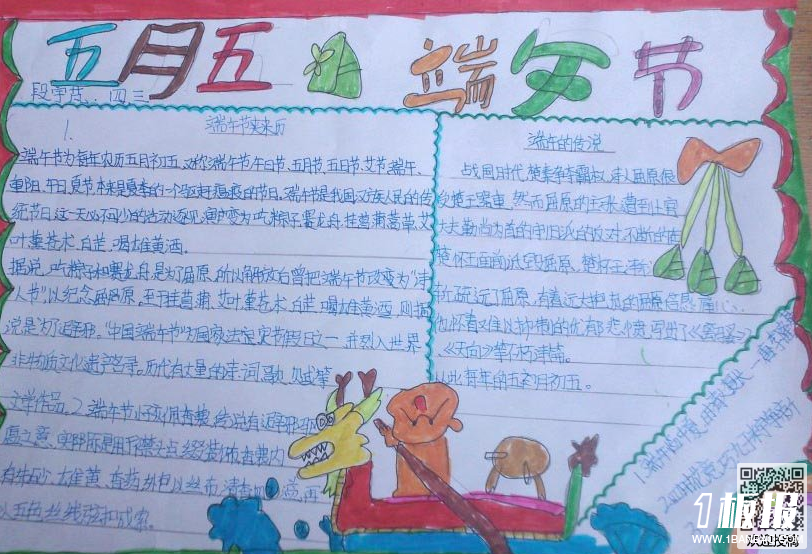 五月五 端午节
段宇 四三
1. 端午节的来历
端午节为每年农历五月初五,又称端阳节、午日节、五月节、五日节、艾节、端午、
重阳、午日、夏节,本来是夏季的一个驱除瘟疫的节日。端午节是我国汉族人民的传
统节日,这一天必不可少的活动逐渐演变为吃粽子,赛龙舟,挂菖蒲、蒿草、艾
叶,薰苍术、白芷,喝雄黄酒。
据说,吃粽子和赛龙舟是为了屈原,所以解放后曾把端午节改变为“诗
人节”以纪念屈原。至于挂菖蒲、艾叶,薰苍术、白芷,喝雄黄酒,则据
说是为了避邪。“中国端午节”为国家法定节假日之一,并列入世界
非物质文化遗产名录。历代有大量的诗、词、歌、赋等
文学作品。2. 端午节小孩佩香囊,传说有避邪驱
之意,实际是用于襟头点缀装饰。香囊内
有朱砂、雄黄、香药,外包以丝布,清香四溢,再
以五色丝线弦扣成索。
端午的传说
战国时代,楚秦争夺霸权,诗人屈原很
受楚王器重,然而屈原的主张遭到上官
大夫靳尚为首的守旧派的反对,不断的在
楚怀王面前诋毁屈原,楚怀王
疏远了屈原,有着远大抱负的屈原倍感痛心,
他怀着难以抑制的忧郁悲愤,写出了《离骚》、
《天问》等不朽诗篇。
每年的五月初五。
1板报
WWW.1BANBAO.COM
欢迎投稿